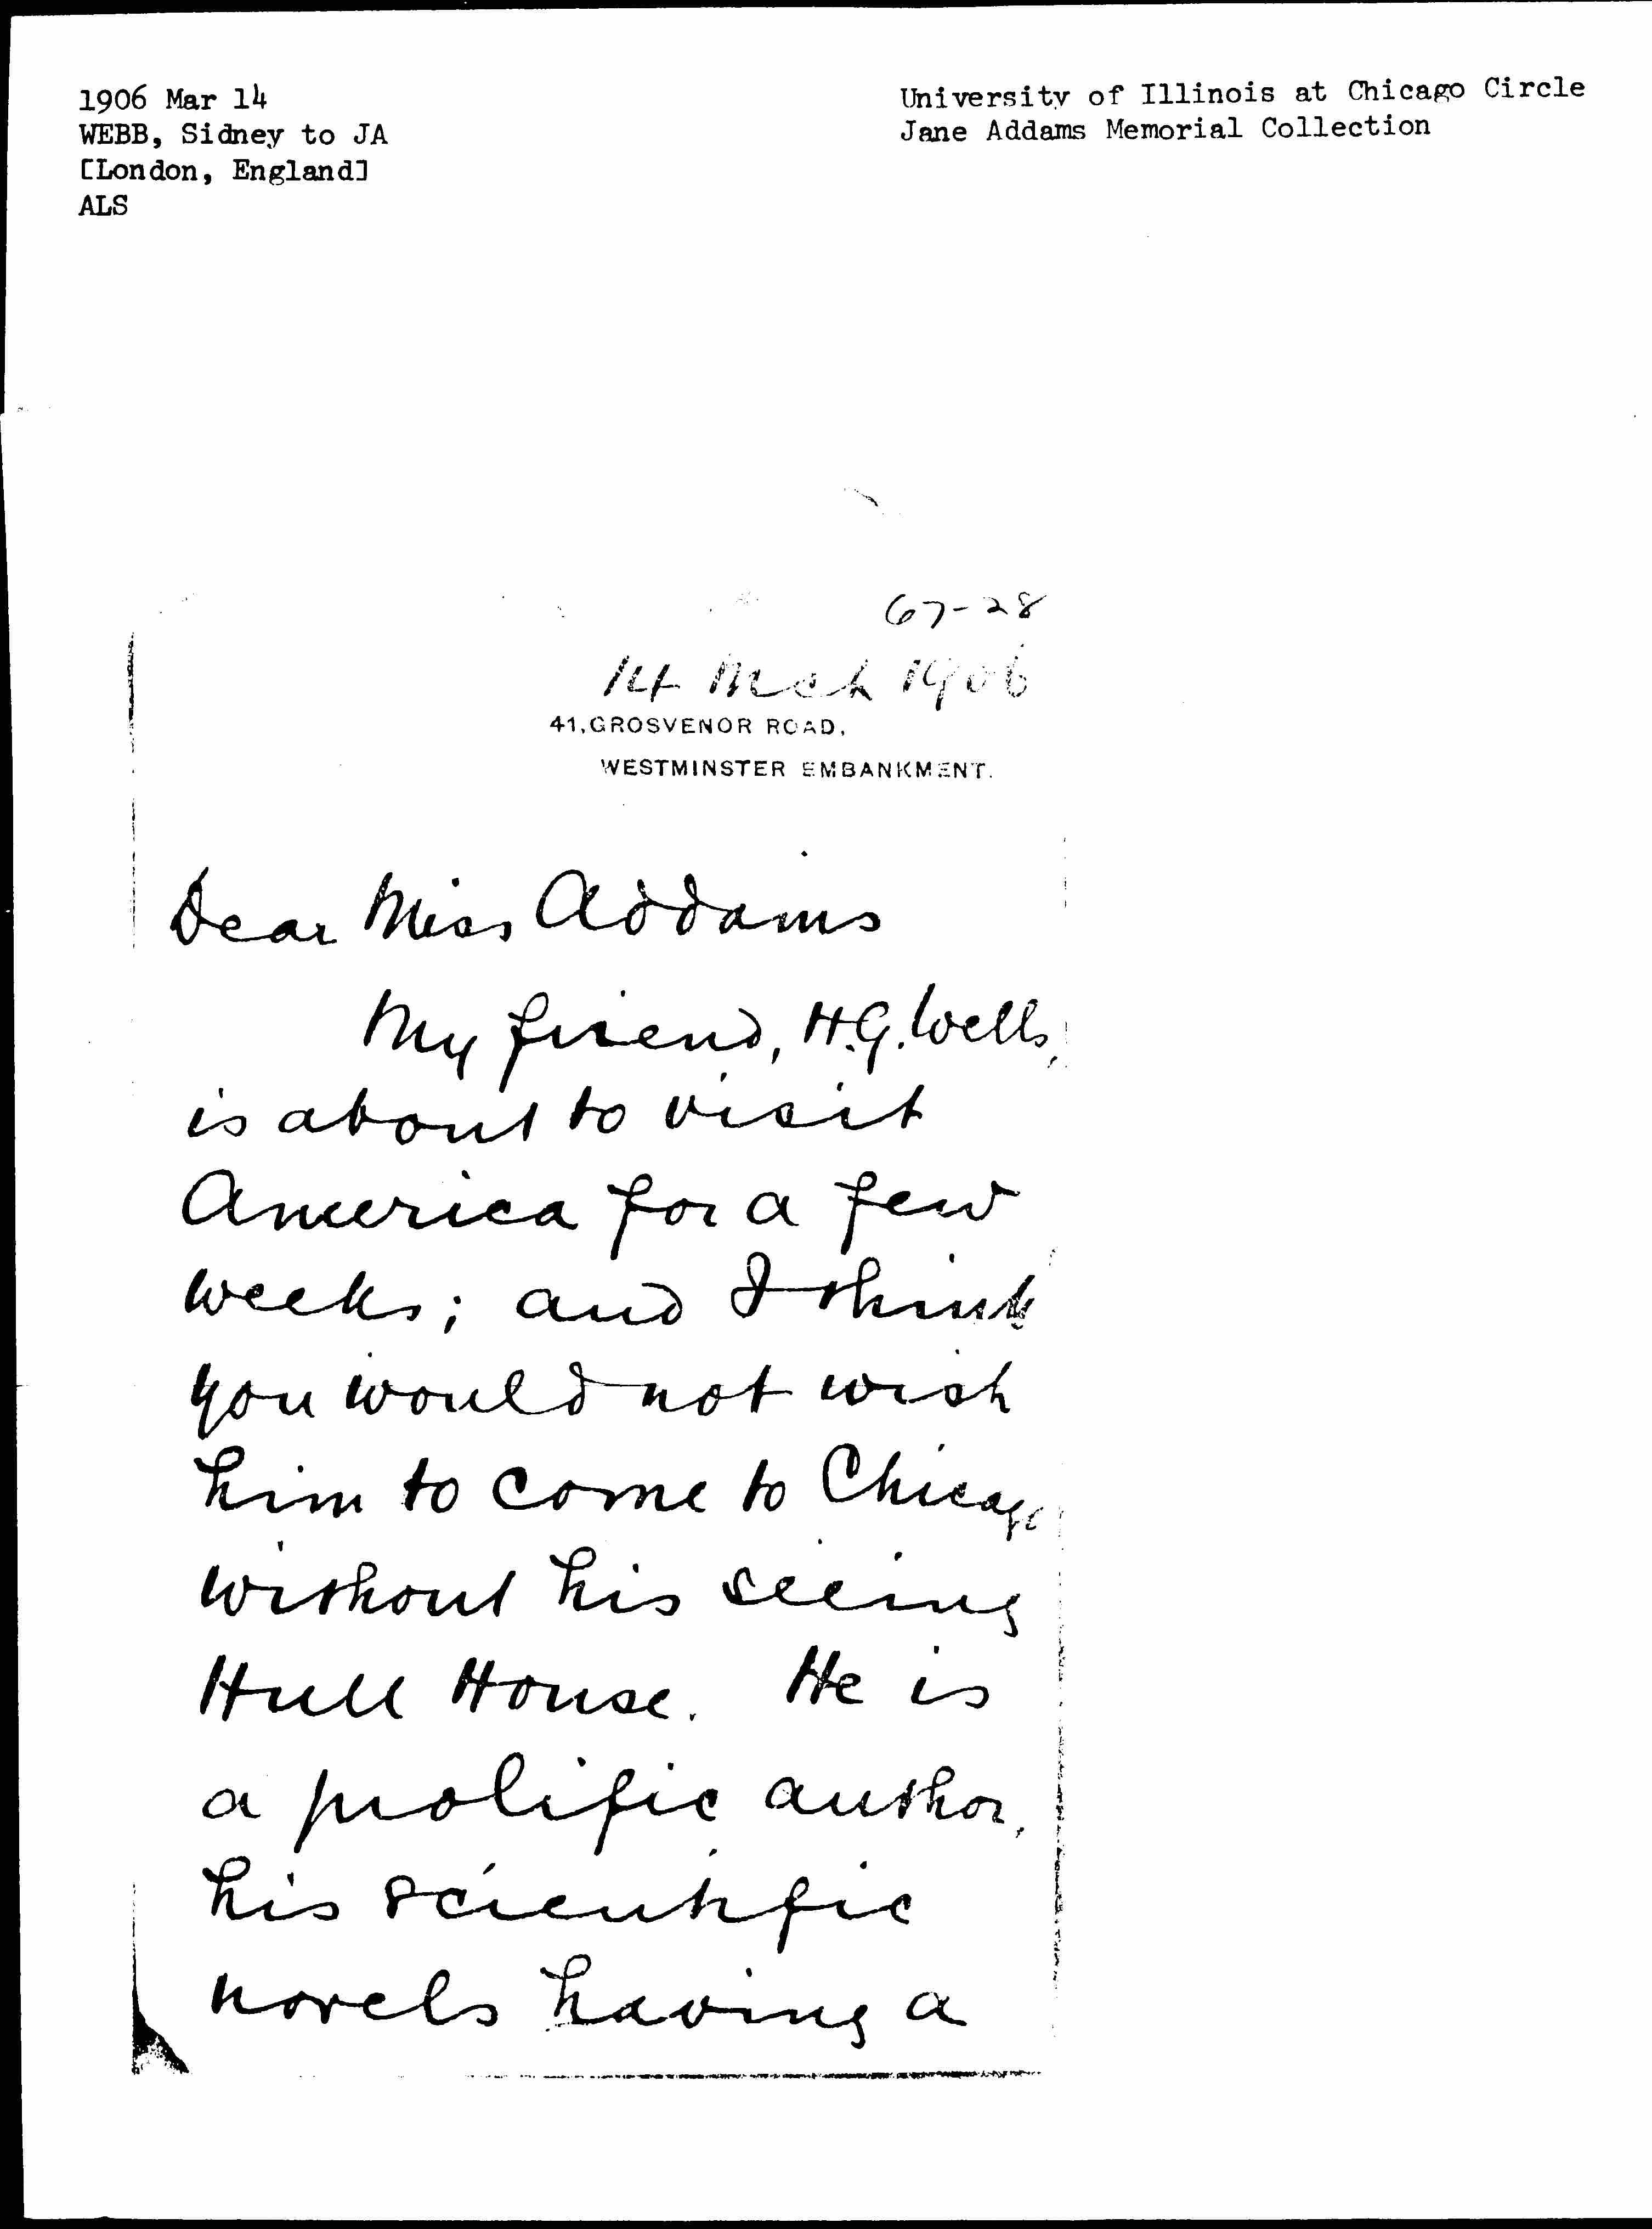 1906 Mar 14
WEBB, Sidney to JA
[London, England]
ALS
University of Illinois at Chicago Circle
Jane Addams Memorial Collection
67-28
14 Mch 1906
41, GROSVENOR ROAD,
WESTMINSTER EMBANKMENT.
Dear Miss Addams
My friend, H.G. Wells,
is about to visit
America for a few
weeks; and I think
you would not wish
him to come to Chicago
without his seeing
Hull House. He is
a prolific author,
his scientific
novels having a